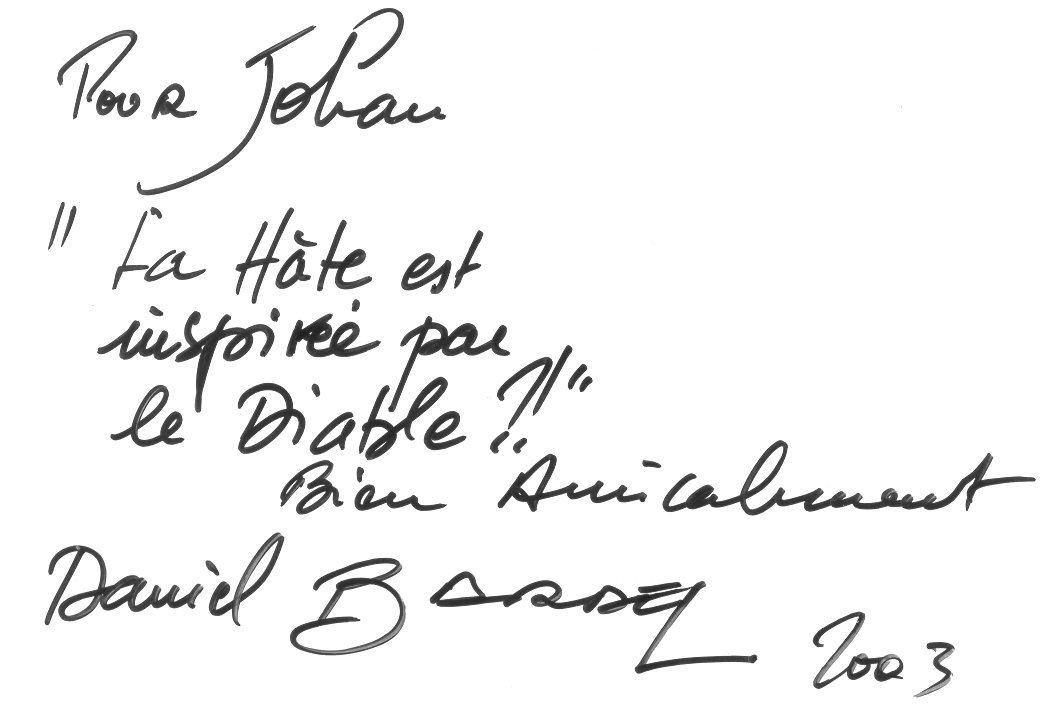 Pour Johan
"La Hâte est
inspirée par
le Diable ?!"
Bien Amicalement
Daniel BARDEL
2003